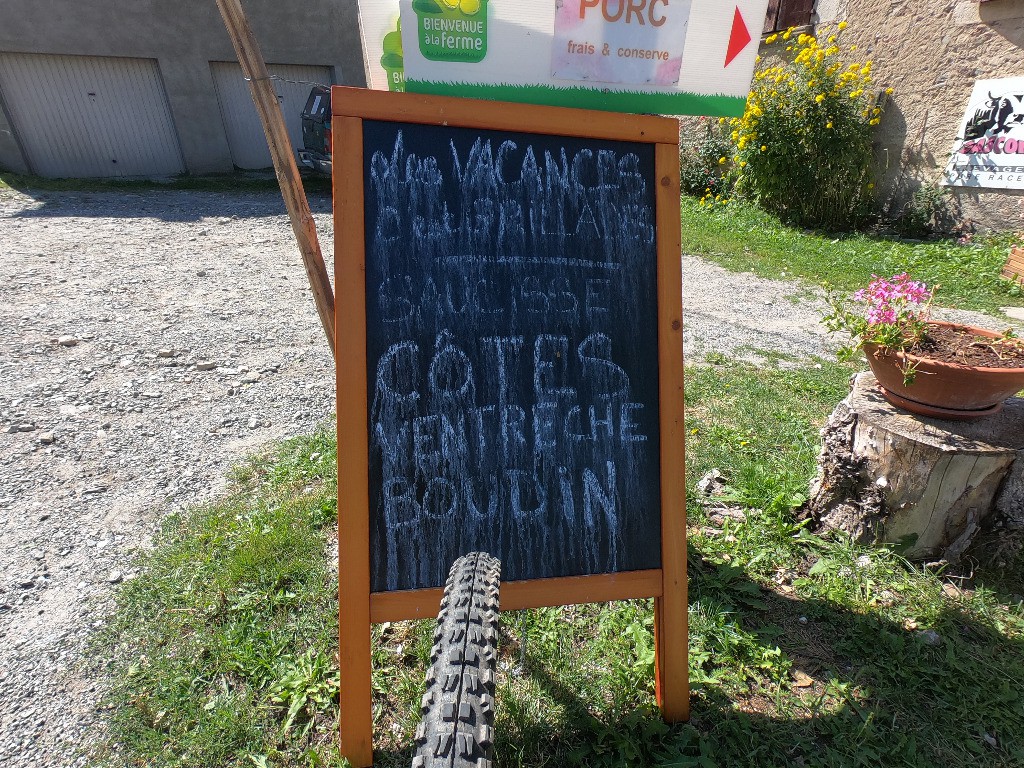 BIENVENUE
à la ferme
PORC
frais & conserve
BI
VACANCES
SAUCISSE
CÔTES
VENTRÈCHE
BOUDIN